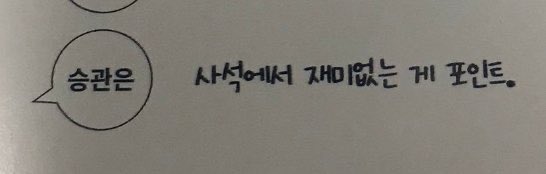 승관은 사석에서 재미없는 게 포인트.